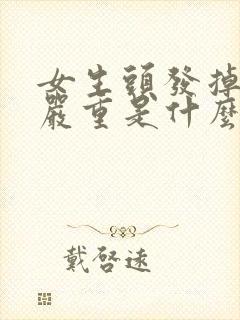 女生頭發掉
嚴重是什麼
戴啓遠